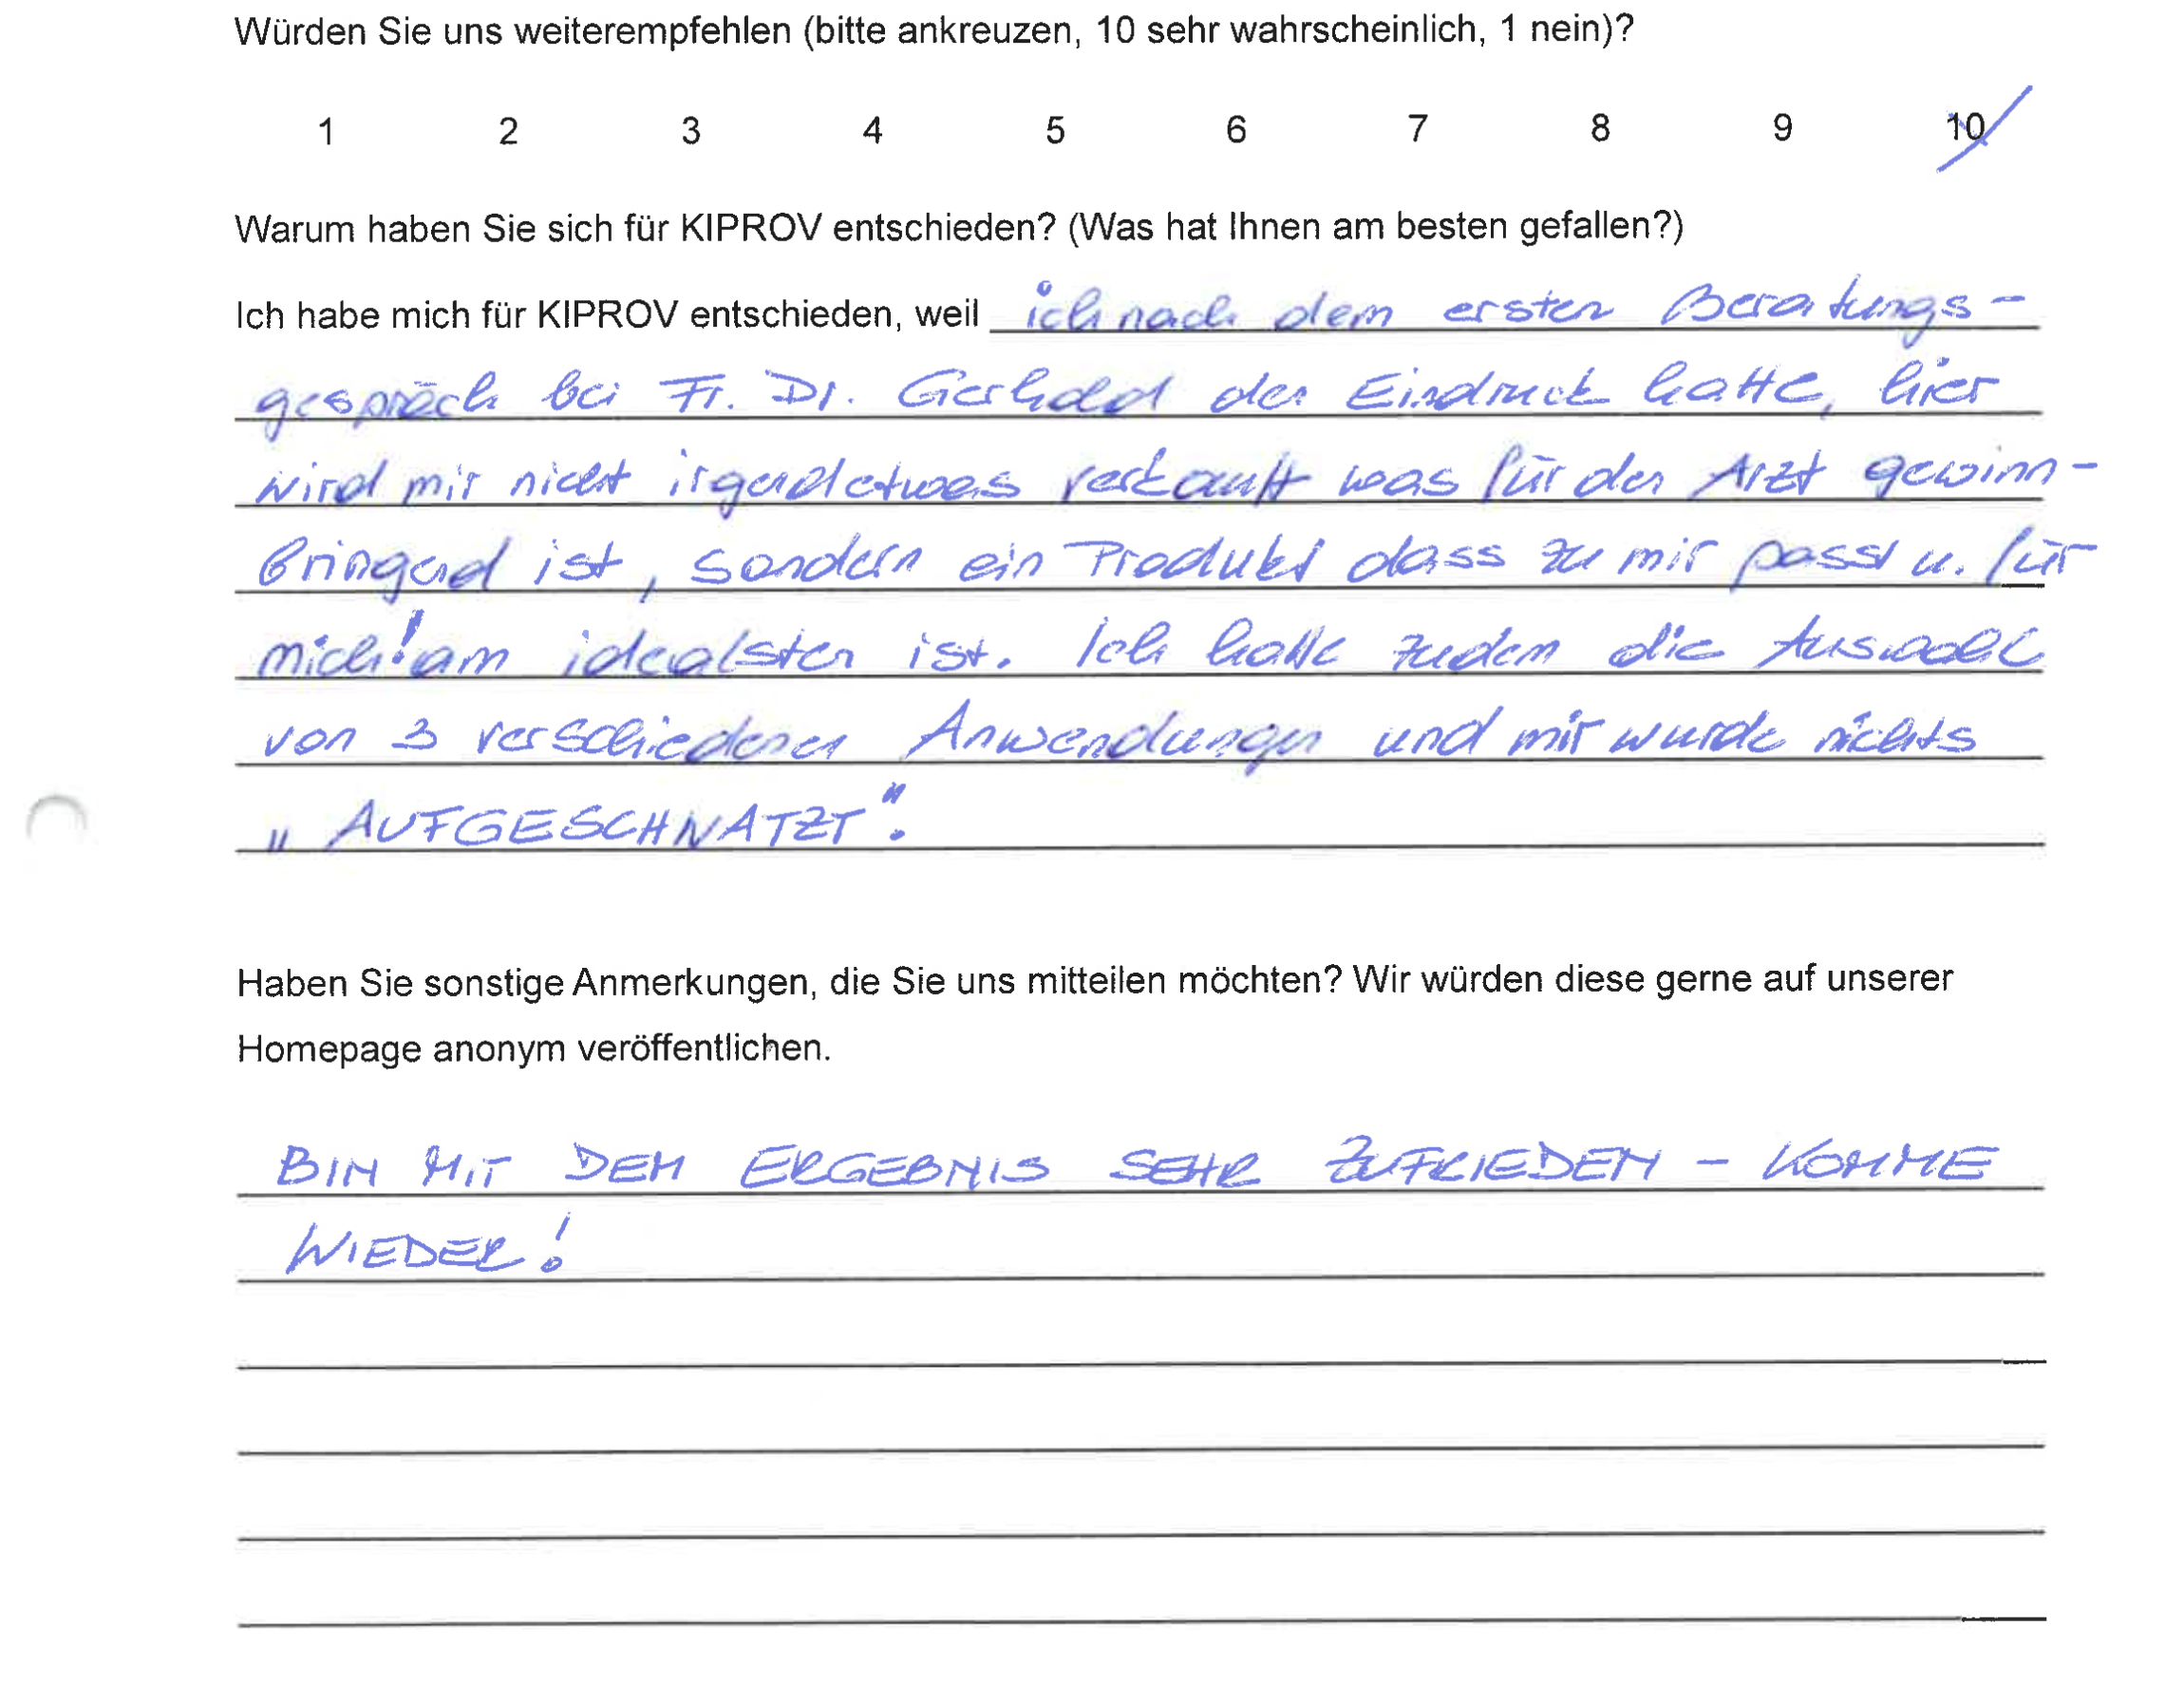 Würden Sie uns weiterempfehlen (bitte ankreuzen, 10 sehr wahrscheinlich, 1 nein)?
1 2 3 4 5 6 7 8 9 10
Warum haben Sie sich für KIPROV entschieden? (Was hat Ihnen am besten gefallen?)
Ich habe mich für KIPROV entschieden, weil ich nach dem ersten Beratungs-
gespräch bei Fr. Dr. Gerhold den Eindruck hatte, hier
wird mir nicht irgendetwas verkauft was für den Arzt gewinn-
bringend ist, sondern ein Produkt dass zu mir passt u. für
mich! am idealsten ist. Ich hatte zudem die Auswahl
von 3 verschiedenen Anwendungen und mir wurde nichts
„AUFGESCHNATZT“.
Haben Sie sonstige Anmerkungen, die Sie uns mitteilen möchten? Wir würden diese gerne auf unserer
Homepage anonym veröffentlichen.
BIN MIT DEM ERGEBNIS SEHR ZUFRIEDEN - KOMME
WIEDER!